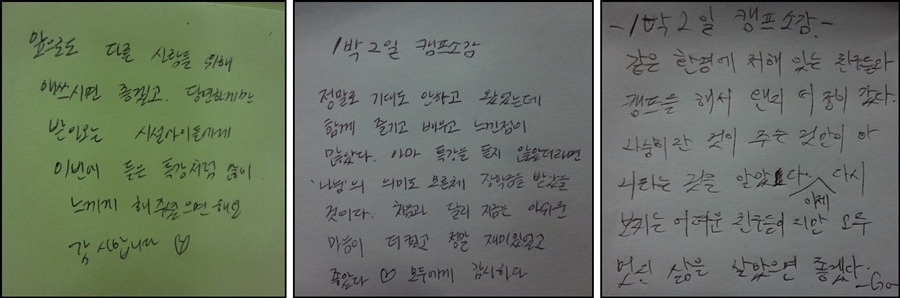 앞으로도 다른 사람들 위해
애쓰시면 좋겠고. 당연하게만
받아오는 시설아이들에게
이번에 들은 특강처럼 많이
느끼게 해주셨으면 해요
감사합니다 ♡
1박 2일 캠프소감
정말로 기대도 안하고 왔었는데
함께 즐기고 배우고 느낀점이
많았다. 아마 특강을 듣지 않았더라면
'나눔'의 의미도 모른체 장학금을 받았을
것이다. 처음과 달리 지금은 아쉬운
마음이 더 컸고 정말 재미있었고
좋았다 ♡ 모두에게 감사하다
-1박 2일 캠프소감.-
같은 환경에 처해 있는 친구들과
캠프를 해서 왠지 더 정이 갔다.
나눔이란 것이 주는 것만이 아
니라는 것을 알았다. 이제 다시
보지는 어려운 친구들이지만 모두
멋진 삶을 살았으면 좋겠다.